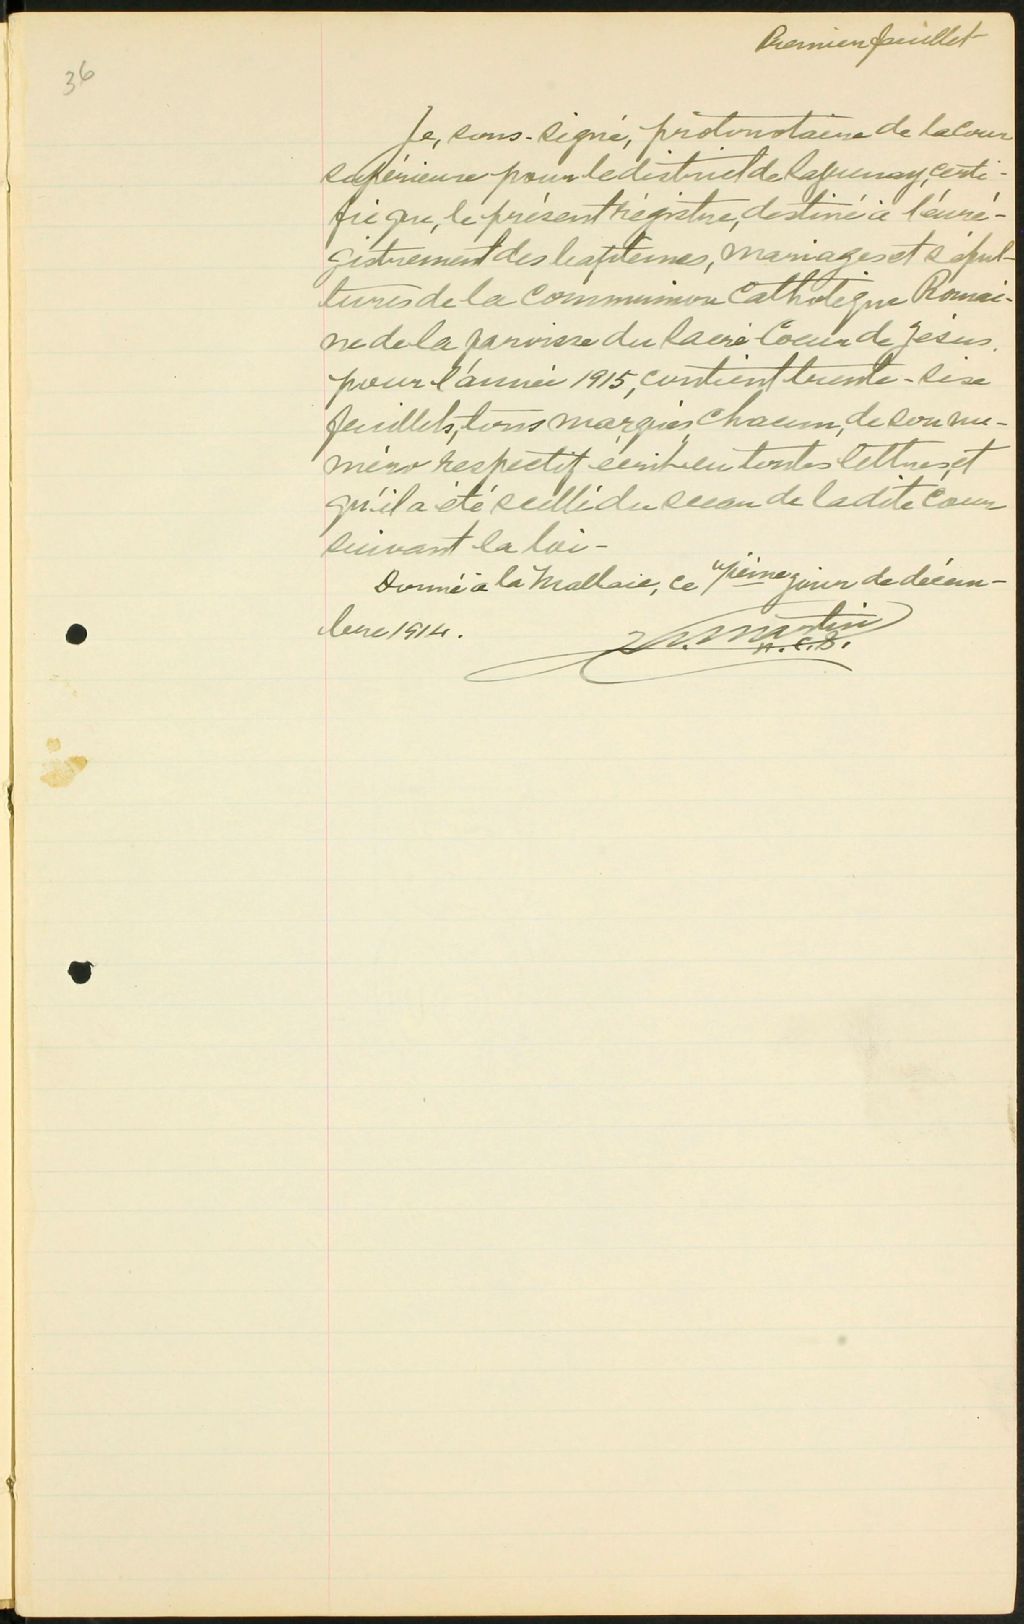 Premier feuillet
36
Je, sous-signé, protonotaire de la Cour
supérieure pour le district de Saguenay, certi-
fie que, le présent régistre, destiné à l'enré-
gistrement des baptemes, mariages et sépul-
tures de la Communion Catholique Romai-
ne de la paroisse du Sacré Coeur de Jésus.
pour l'année 1915, contient trente-six
feuillets, tous marqués chacun, de son nu-
méro respectif écrit en toutes lettres, et
qu'il a été scellé du sceau de la dite Cour
suivant la loi-
Donné à la Malbaie, ce jour de décem-
bre 1914.
Martin